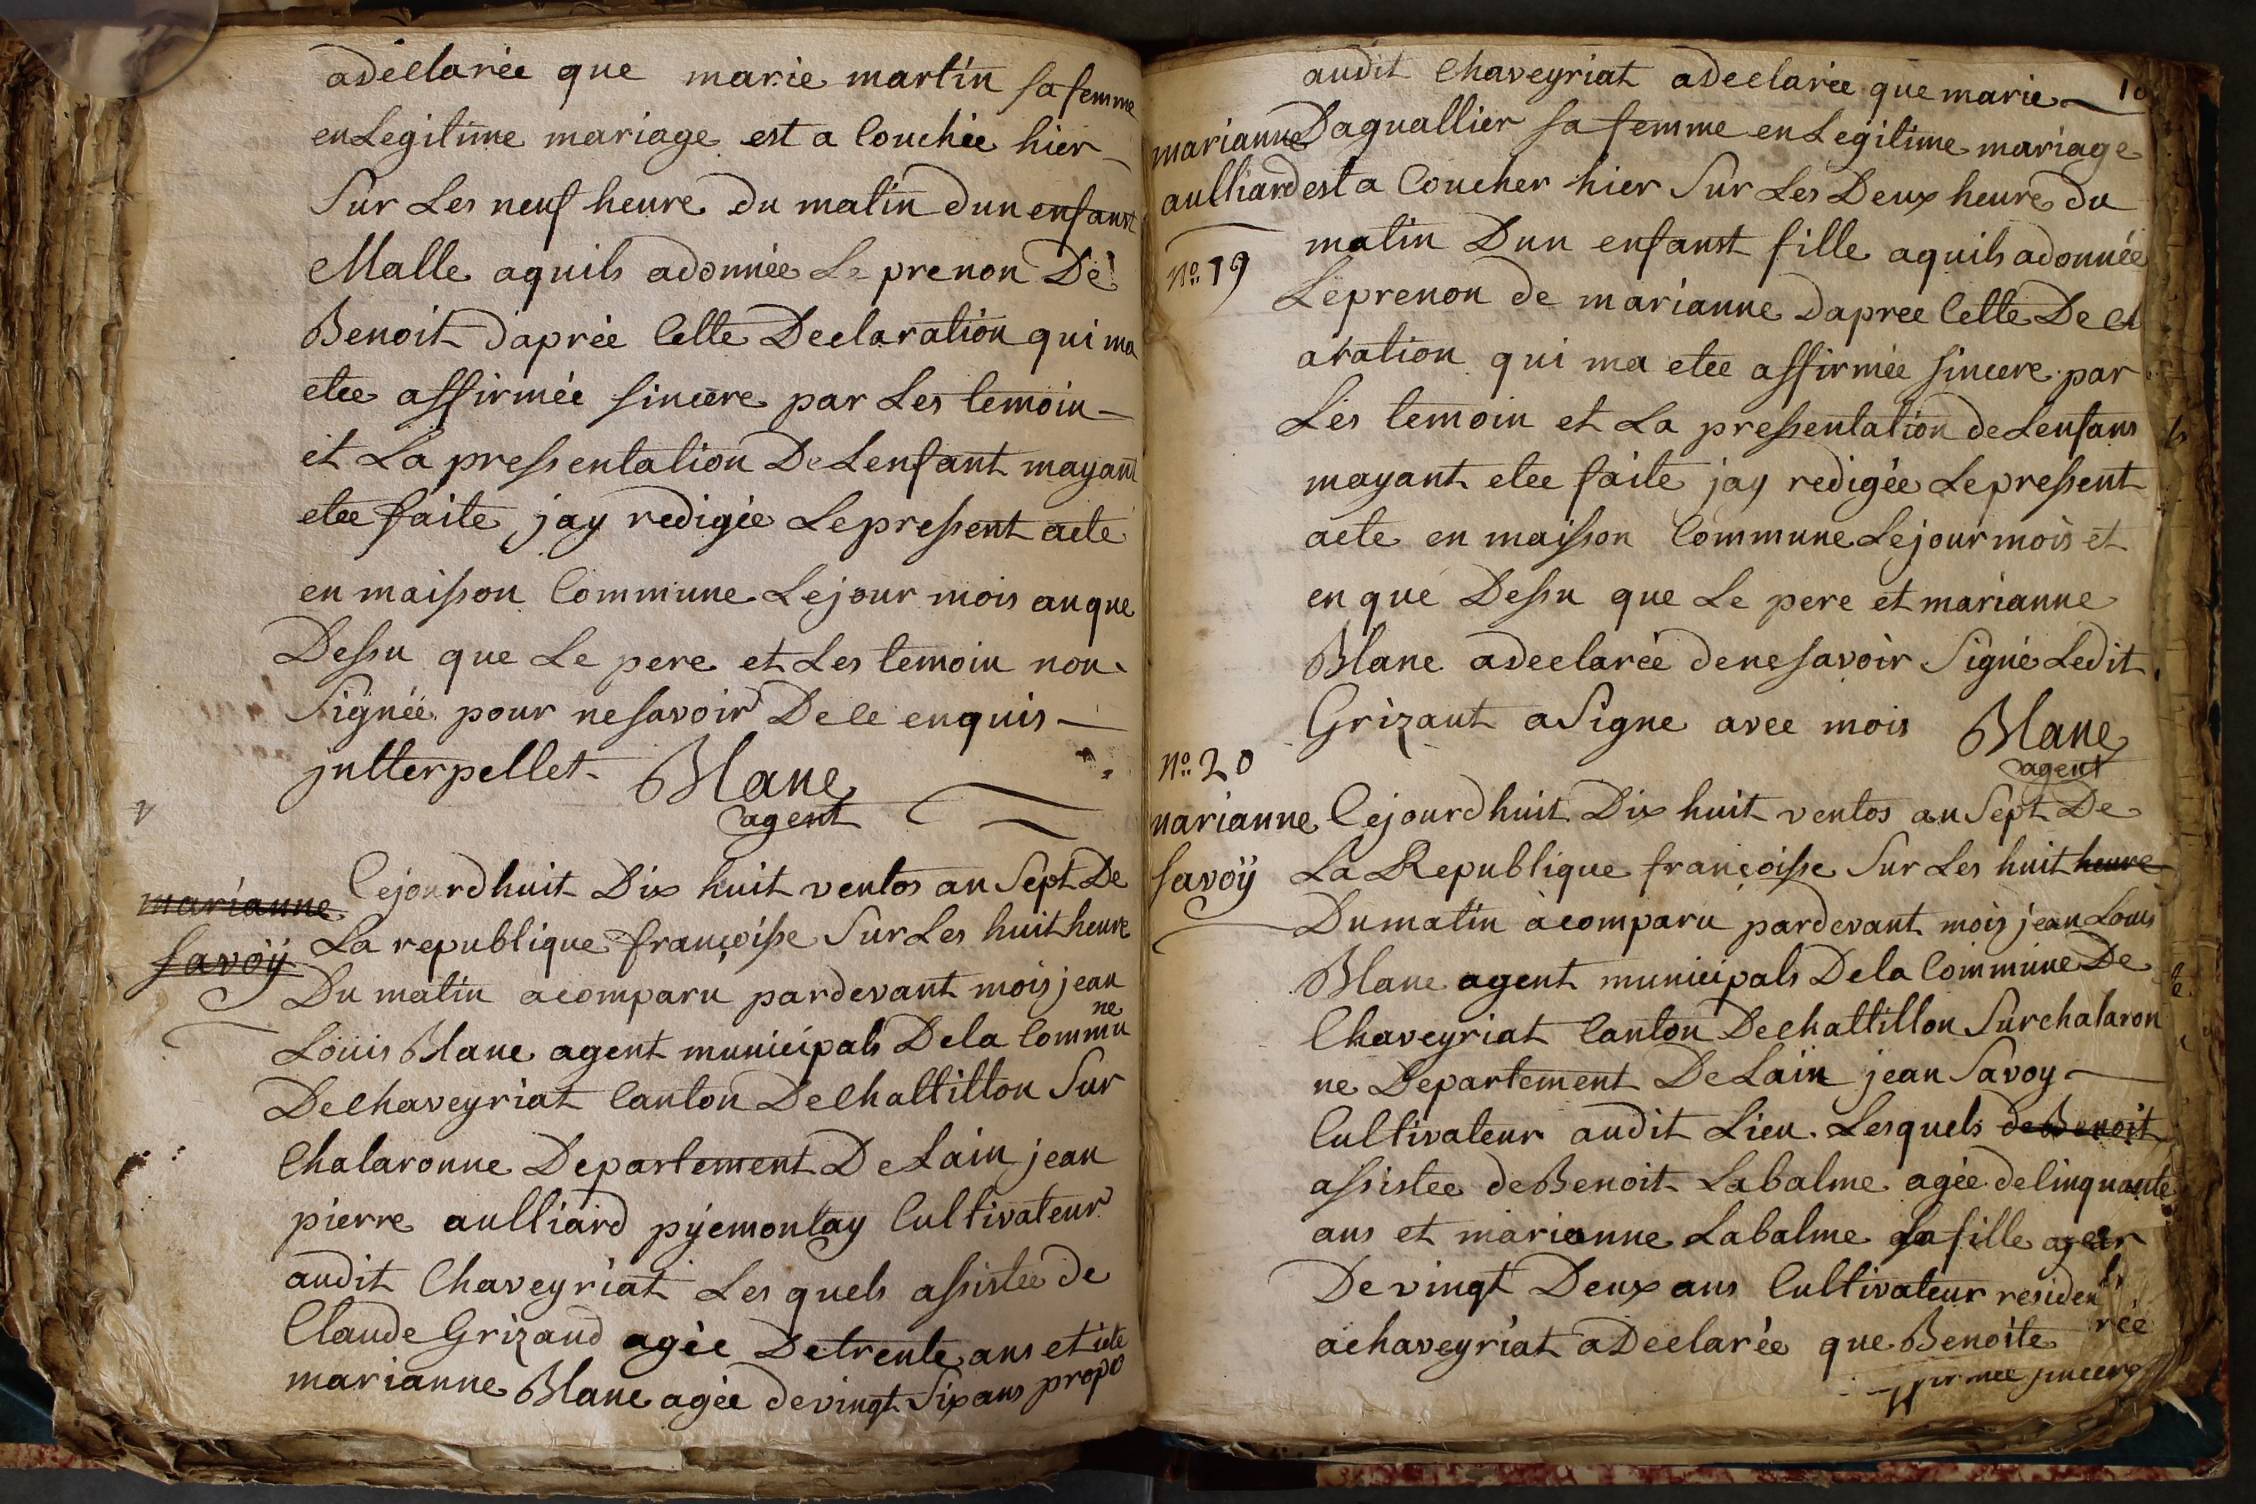 adeclarée que marie martin sa femme
en Legitime mariage est a Couchée hier
Sur Les neuf heure du matin dun enfanst
Malle aquils adonnée Le prenon De
Benoit daprée Cette Declaration qui ma
etee affirmée sincere par Les temoin
et La pressentation De Lenfant mayant
etee faite jay redigée Lepressent acte
en maisson Commune Lejour mois an que
Dessu que Le pere et Les temoin non
Signée pour ne savoir De ce enquis
jntterpellet Blanc
agent
marianne
savoÿ
Cejourdhuit Dix huit ventos an Sept De
La republique françoisse Sur Les huit heure
Du matin acomparu pardevant mois jean
Louis Blanc agent municipals Dela Commu
ne
Dechaveyriat Canton Dechattillon Sur
Chalaronne Departement De Lain jean
pierre aulliard pÿemontay Cultivateur
audit Chaveyriat Les quels assistee de
Claude Grizand agée De trente ans et
marianne Blanc agée de vingt Six ans propo
10
audit Chaveyriat adeclarée que marie
marianne
aulliard
N° 19
Daguallier sa femme en Legitime mariage
est a Coucher hier Sur Les Deux heure du
matin Dun enfanst fille aquils adonnée
Leprenon de marianne dapree Cette Decl
aration qui ma etee affirmée sincere par
Les temoin et La pressentation de Lenfans
mayant etee faite jay redigée Lepressent
acte en maisson Commune Lejour mois et
en que Dessu que Le pere et marianne
Blanc adeclarée dene savoir Signé Ledit
Grizant a Signe avec mois Blanc
agent
N° 20
marianne
savoÿ
Cejourdhuit Dix huit ventos an Sept De
La Republique françoisse Sur Les huit heure
Du matin àcomparu pardevant mois jean Louis
Blanc agent municipals Dela Commune De
Chaveyriat Canton Dechattillon Surchalaron
ne Departement De Lain jean Savoy
Cultivateur audit Lieu Lesquels de Benoit
assistee de Benoit Labalme agée de Cinquante
ans et marianne Labalme sa fille agee
De vingt Deux ans Cultivateur residen
achaveyriat aDeclarée que Benoite
rée
sincere